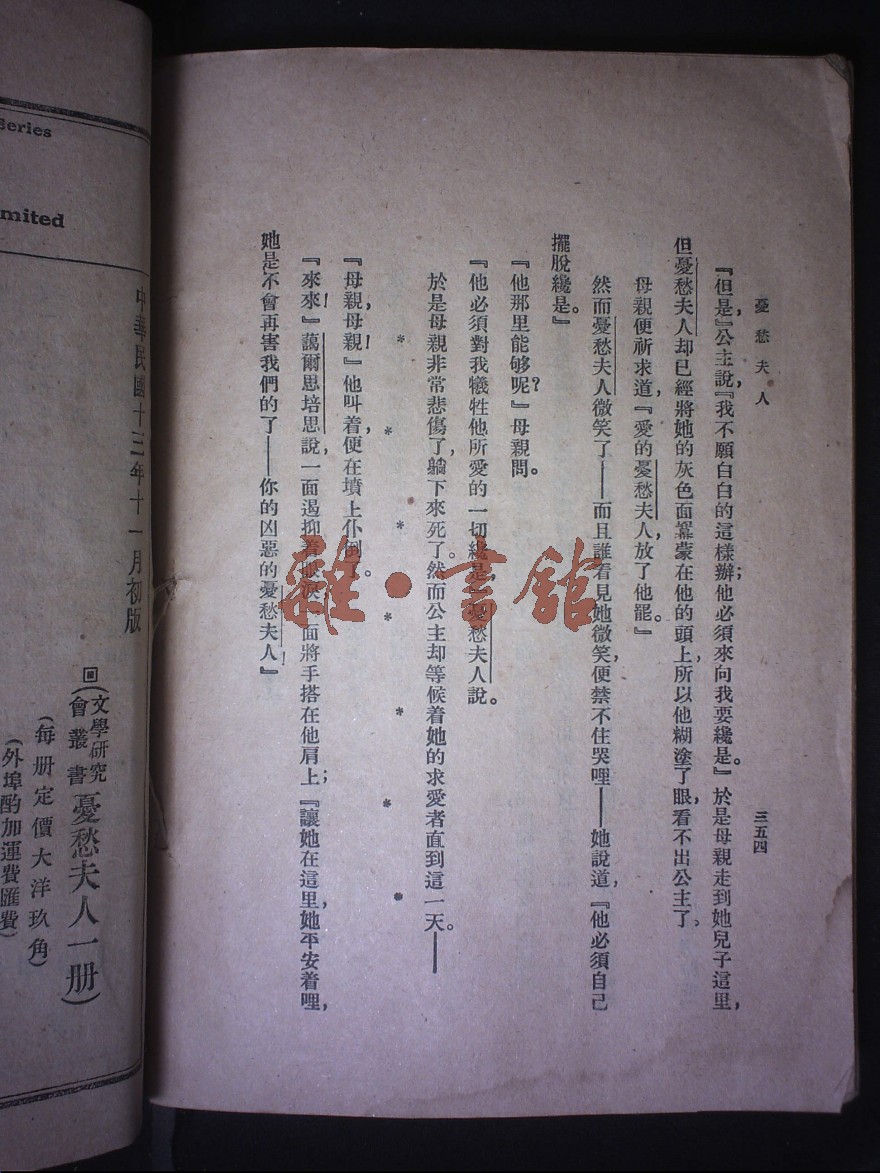 憂愁夫人
三五四
『但是』公主說，『我不願白白的這樣辦；他必須來向我要纔是。』於是母親走到她兒子這里，
但憂愁夫人却已經將她的灰色面羃蒙在他的頭上，所以他糊塗了眼，看不出公主了。
母親便祈求道，『愛的憂愁夫人，放了他罷。』
然而憂愁夫人微笑了——而且誰看見她微笑，便禁不住哭哩——她說道，『他必須自己
擺脫纔是。』
『他那里能够呢？』母親問。
『他必須對我犧牲他所愛的一切纔是，』憂愁夫人說。
於是母親非常悲傷了，躺下來死了。然而公主却等候着她的求愛者直到這一天。——
* * * * * * * *
『母親，母親！』他叫着，便在墳上仆倒了。
『來來！』藹爾思培思說，一面遏抑着眼淚，一面將手搭在他肩上；『讓她在這里，她平安着哩，
她是不會再害我們的了——你的凶惡的憂愁夫人！』
雜·書館
Series
mited
中華民國十三年十一月初版
(文學研究會叢書憂愁夫人一册)
(每册定價大洋玖角)
(外埠酌加運費匯費)